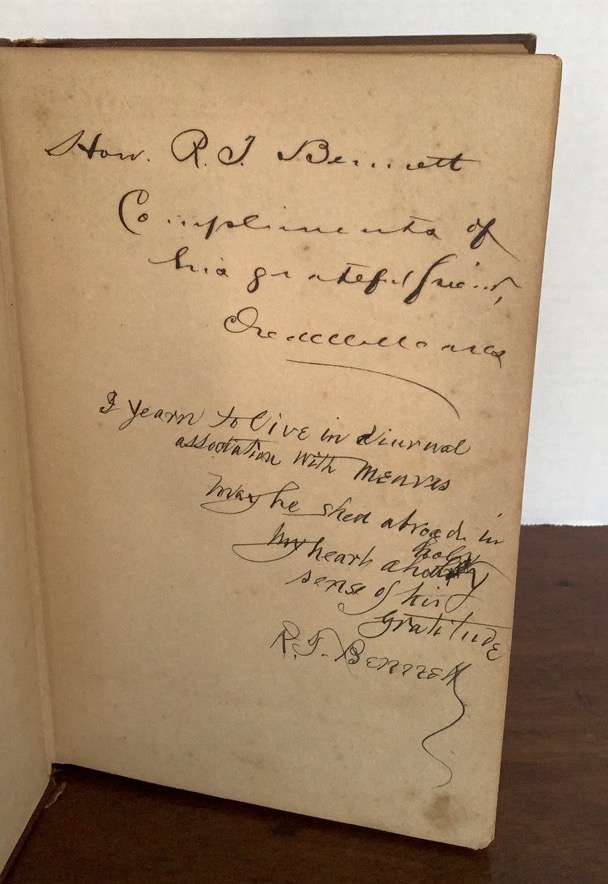 Hon. R. T. Bennett
Compliments of
his grateful friend,
I yearn to live in diurnal
association with Meares
may he shed abroad in
my heart a holy
sense of his
gratitude
R. T. Bennett